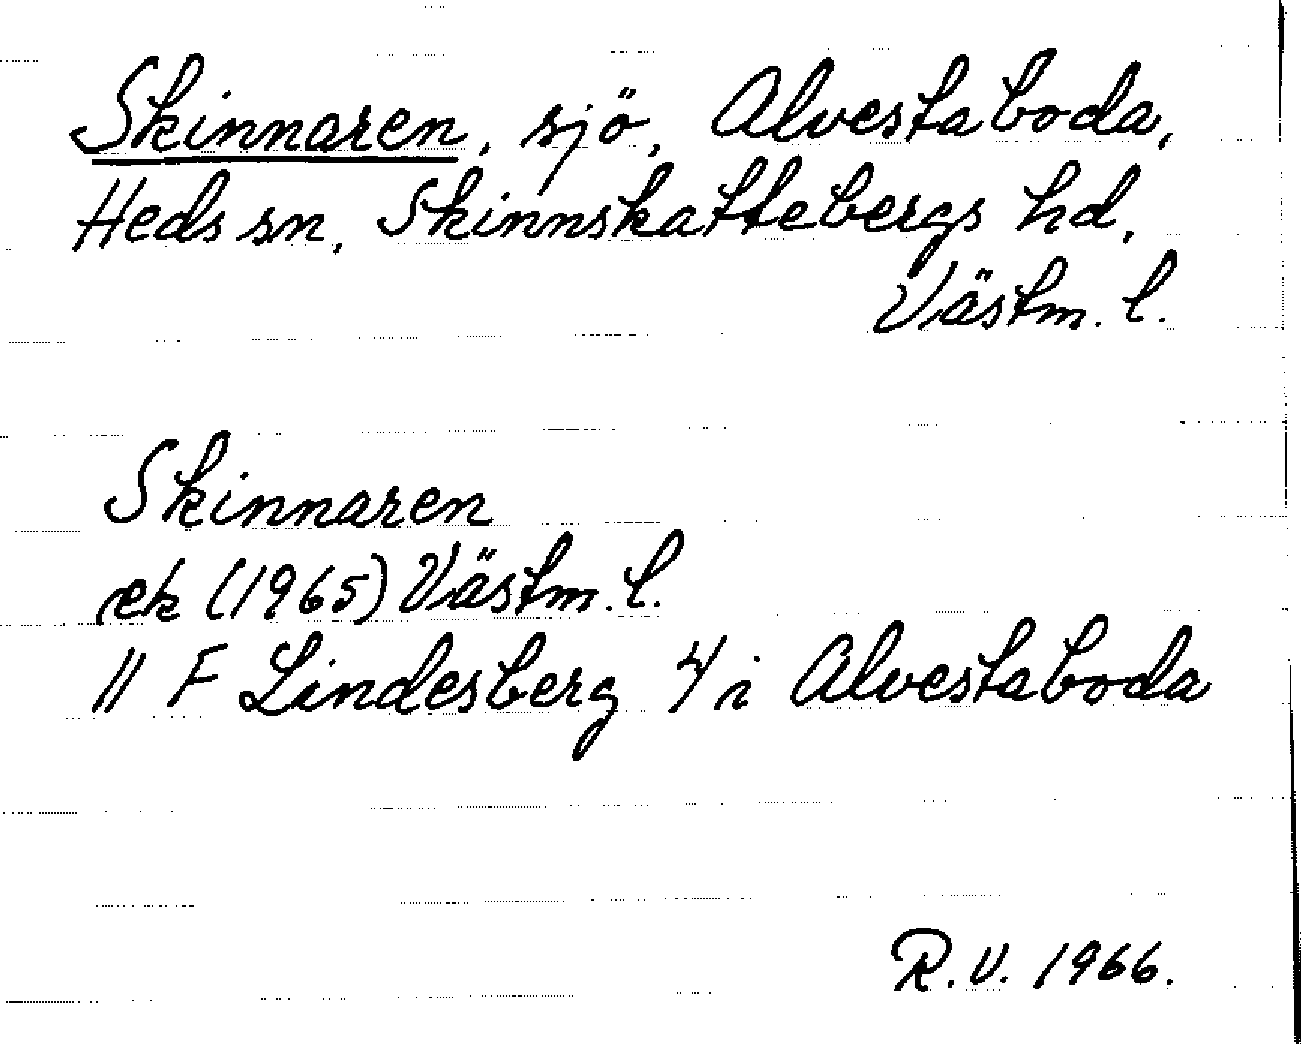 Skinnaren, sjö, Alvestaboda,
Heds sn, Skinnskattebergs hd,
Västm. l.
Skinnaren
ek (1965) Västm. l.
11 F Lindesberg 4/i Alvestaboda
R.V. 1966.